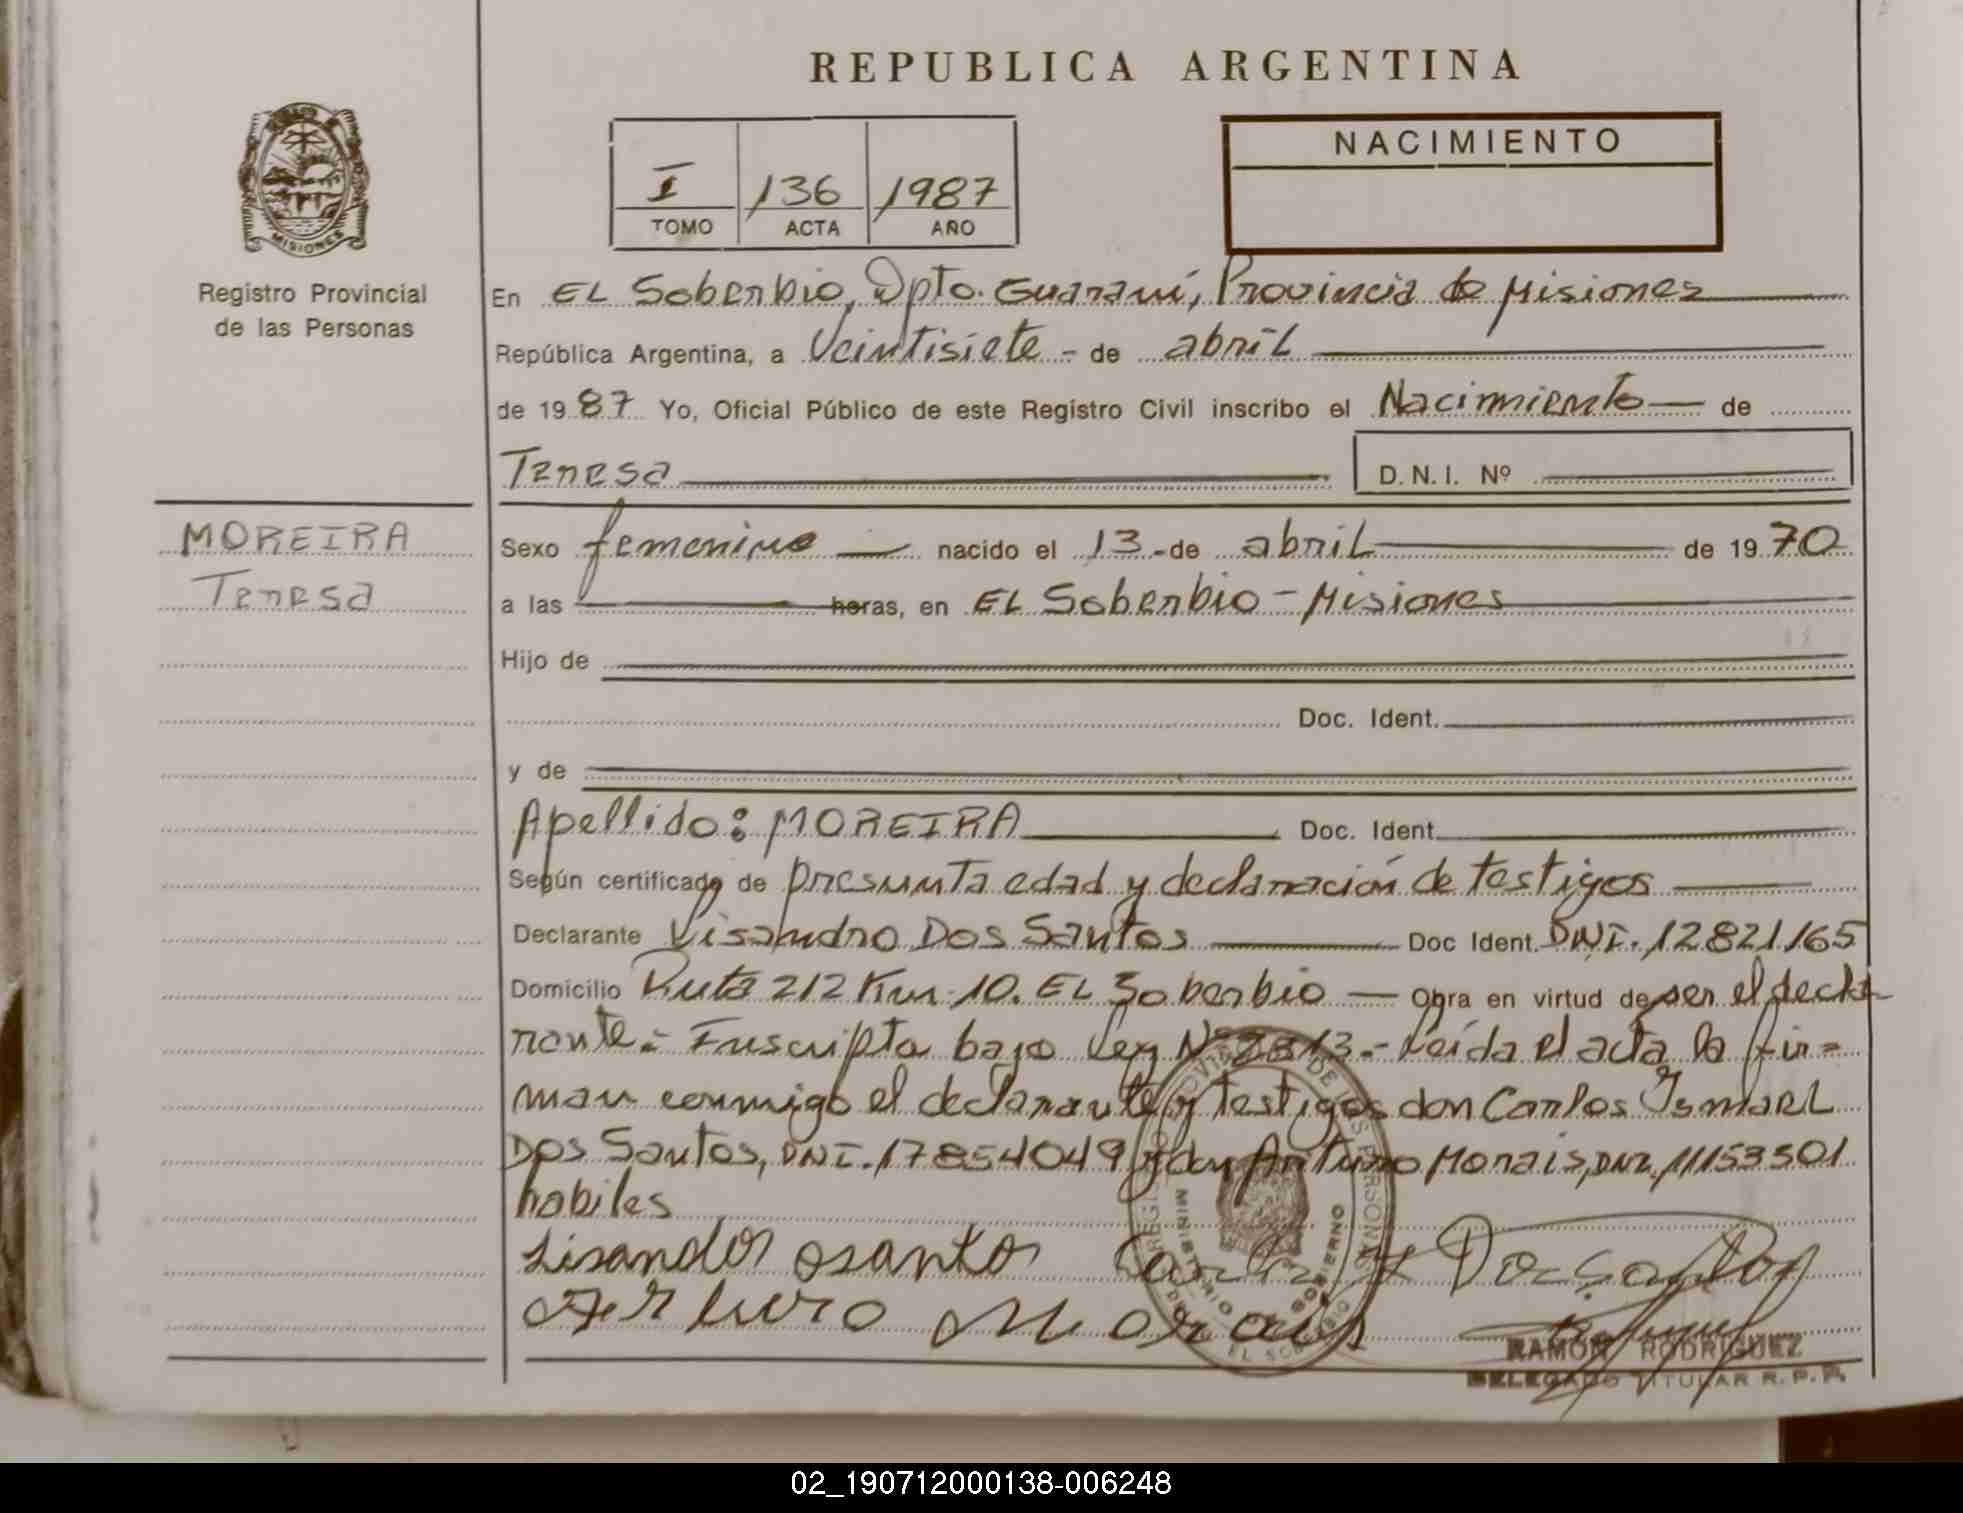 REPUBLICA ARGENTINA
MISIONES
Registro Provincial
de las Personas
I 136 1987
TOMO ACTA AÑO
NACIMIENTO
En EL Soberbio, Dpto. Guaraní, Provincia de Misiones
República Argentina, a Veintisiete - de abril
de 1987 Yo, Oficial Público de este Registro Civil inscribo el Nacimiento — de
Teresa D.N.I. Nº
MOREIRA
Teresa
Sexo femenino nacido el 13 - de abril de 1970
a las horas, en EL Soberbio - Misiones
Hijo de
Doc. Ident.
y de
Apellido: MOREIRA Doc. Ident.
Según certificado de presunta edad y declaración de testigos
Declarante Lisandro Dos Santos Doc Ident. DNI. 12821165
Domicilio Ruta 212 Km. 10. EL Soberbio — Obra en virtud de ser el decla
rante.- Inscripta bajo Ley Nº 2313.- Leída el acta la fir=
man conmigo el declarante y testigos don Carlos Ismael
Dos Santos, DNI. 17854049 y don Arturo Morais, DNI. 11153501
habiles
Lisandos osantos Dos Santos
Arturo Morais
MINISTERIO GOBIERNO
EL SOBERBIO
RAMON RODRIGUEZ
DELEGADO TITULAR R.P.P.
02_190712000138-006248